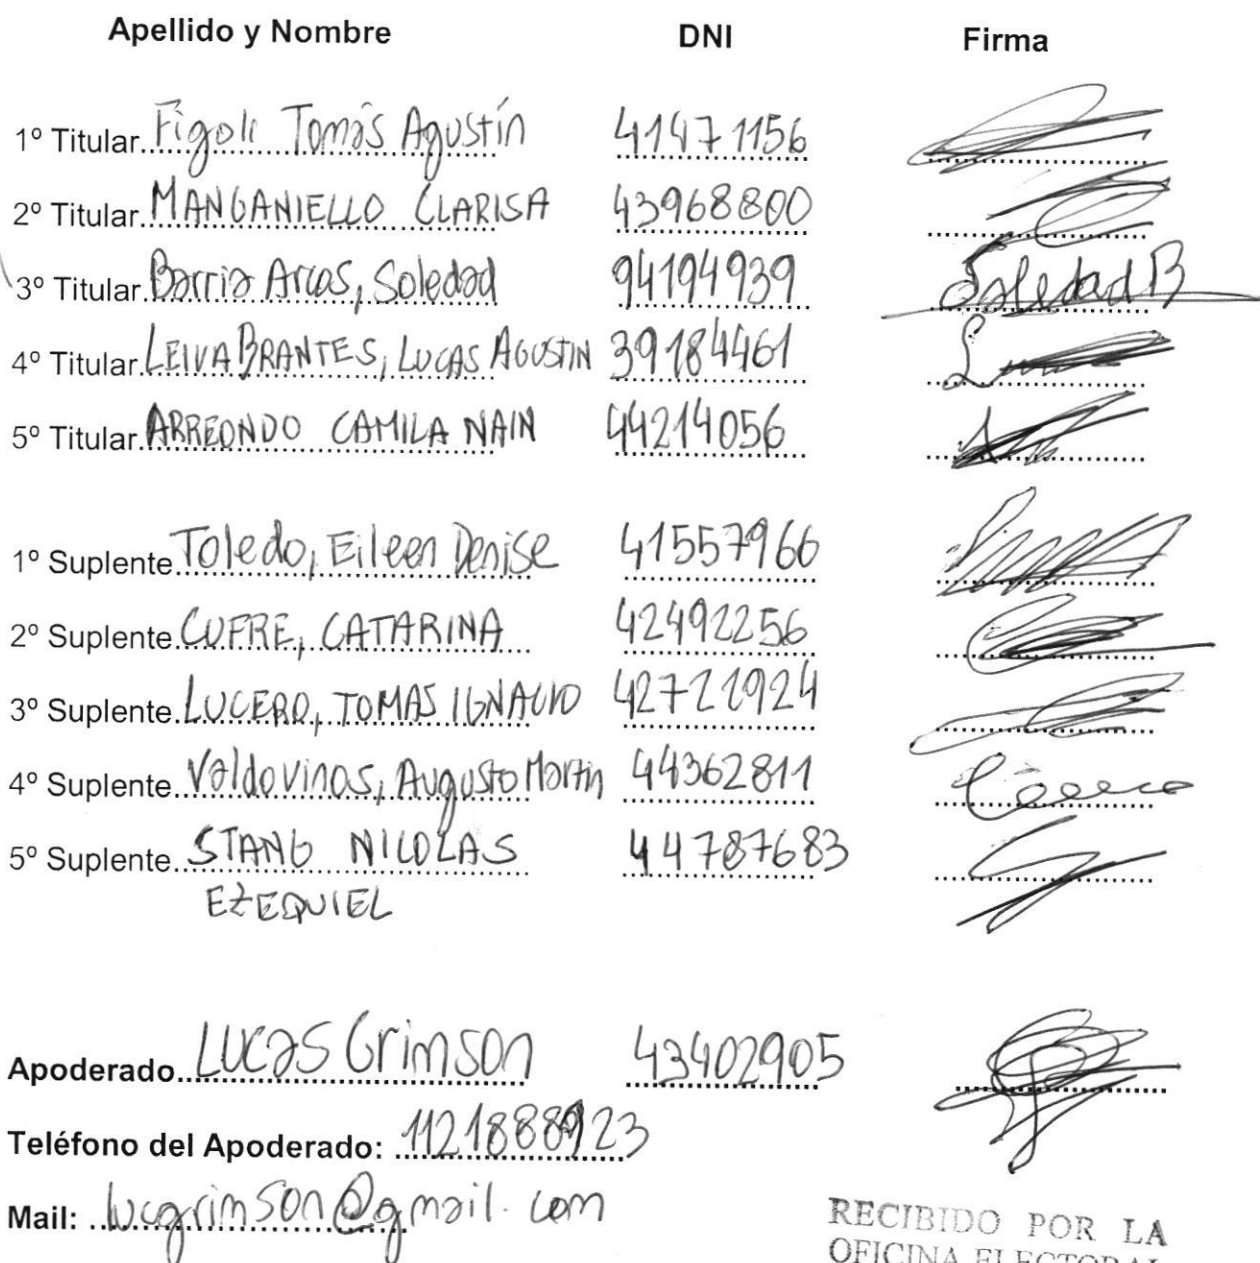 Apellido y Nombre DNI Firma
1º Titular Figoli Tomás Agustín 41471156
2º Titular MANGANIELLO CLARISA 43968800
3º Titular Barria Arcos, Soledad 94194939 Soledad B
4º Titular LEIVA BRANTES, LUCAS AGUSTIN 39184461
5º Titular ARREONDO CAMILA NAIN 44214056
1º Suplente Toledo, Eileen Denise 41557966
2º Suplente CUFRE, CATARINA 42492256
3º Suplente LUCERO, TOMAS IGNACIO 42721924
4º Suplente Valdovinos, Augusto Martin 44362811
5º Suplente STANG NICOLAS 44787683
EZEQUIEL
Apoderado Lucas Grimson 43402905
Teléfono del Apoderado: 1121888923
Mail: lucgrimson@gmail.com
RECIBIDO POR LA
OFICINA ELECTORAL